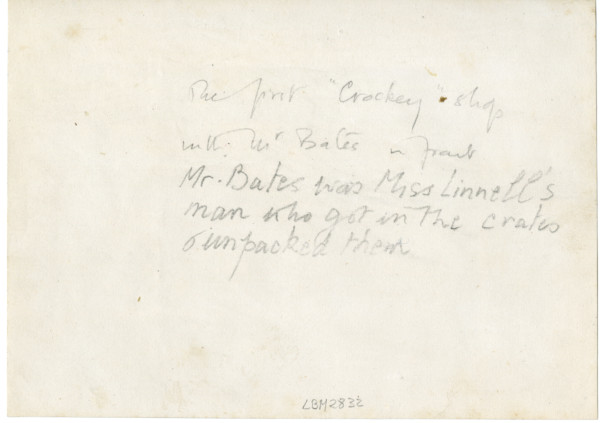 The first "Crockey" shop
with Mr Bates in front
Mr. Bates was Miss Linnell's
man who got in the crates
& unpacked them
LBM2832